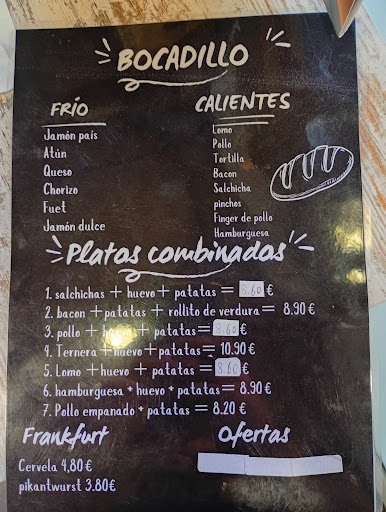 BOCADILLO
FRÍO
Jamón país
Atún
Queso
Chorizo
Fuet
Jamón dulce
CALIENTES
Lomo
Pollo
Tortilla
Bacon
Salchicha
pinchos
Finger de pollo
Hamburguesa
Platos combinados
1. salchichas + huevo + patatas = 8.60 €
2. bacon + patatas + rollito de verdura = 8.90 €
3. pollo + huevo + patatas = 8.60 €
4. Ternera + huevo + patatas = 10.90 €
5. Lomo + huevo + patatas = 8.60 €
6. hamburguesa + huevo + patatas = 8.90 €
7. Pollo empanado + patatas = 8.20 €
Frankfurt
Cervela 4,80 €
pikantwurst 3.80€
Ofertas